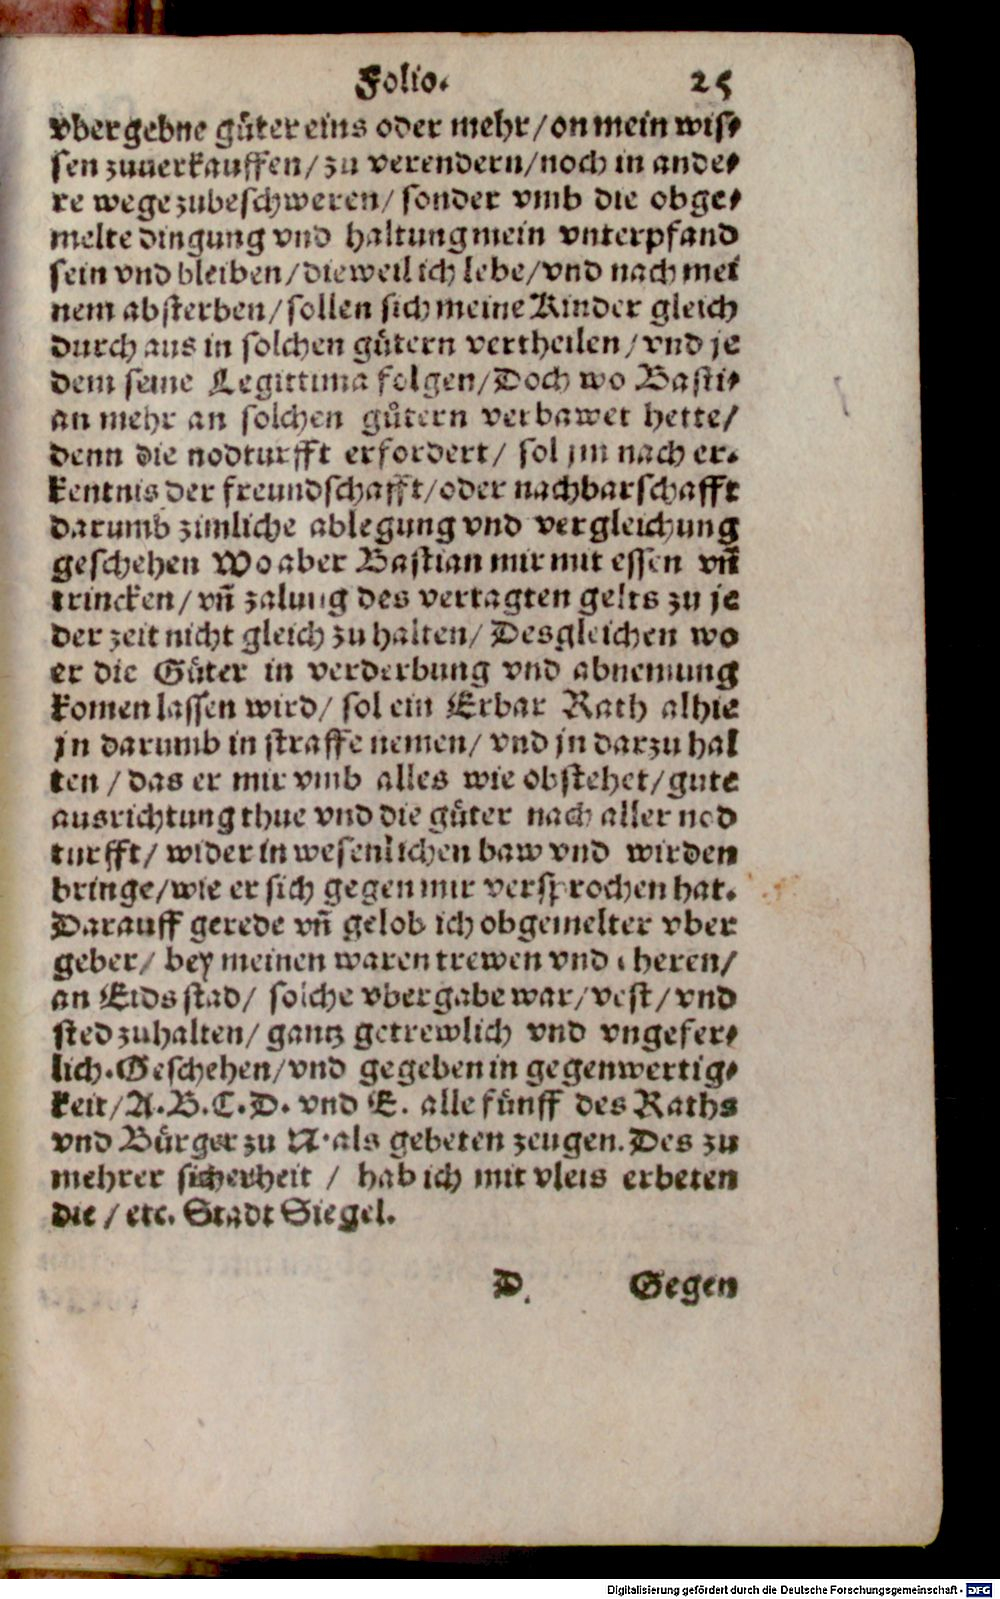 Folio. 25
vbergebne gůter eins oder mehr/on mein wiſ⸗
ſen zuuerkauffen/zu verendern/noch in ande⸗
re wege zubeſchweren/ ſonder vmb die obge⸗
melte dingung vnd haltung mein vnterpfand
ſein vnd bleiben/dieweil ich lebe/vnd nach mei
nem abſterben/ſollen ſich meine Kinder gleich
durch aus in ſolchen gůtern vertheilen/vnd je
dem ſeine Legittima folgen/Doch wo Baſti⸗
an mehr an ſolchen gůtern verbawet hette/
denn die nodturfft erfordert/ ſol jm nach er⸗
kentnis der freundſchafft/oder nachbarſchafft
darumb zimliche ablegung vnd vergleichung
geſchehen Wo aber Baſtian mir mit eſſen vñ
trincken/ vñ zalung des vertagten gelts zu je
der zeit nicht gleich zu halten/ Desgleichen wo
er die Gůter in verderbung vnd abnemung
komen laſſen wird/ ſol ein Erbar Rath alhie
jn darumb in ſtraffe nemen/ vnd jn darzu hal
ten / das er mir vmb alles wie obſtehet/gute
ausrichtung thue vnd die gůter nach aller nod
turfft/ wider in weſenlichen baw vnd wirden
bringe/wie er ſich gegen mir verſprochen hat.
Darauff gerede vñ gelob ich obgemelter vber
geber/ bey meinen waren trewen vnd eheren/
an Eids ſtad/ ſolche vbergabe war/veſt/vnd
ſted zuhalten/ gantz getrewlich vnd vngefer⸗
lich.Geſchehen/vnd gegeben in gegenwertig⸗
keit/A.B.C.D. vnd E. alle fůnff des Raths
vnd Bůrger zu N.als gebeten zeugen.Des zu
mehrer ſicherheit / hab ich mit vleis erbeten
die / etc. Stadt Siegel.
D. Gegen
Digitalisierung gefördert durch die Deutsche Forschungsgemeinschaft - DFG